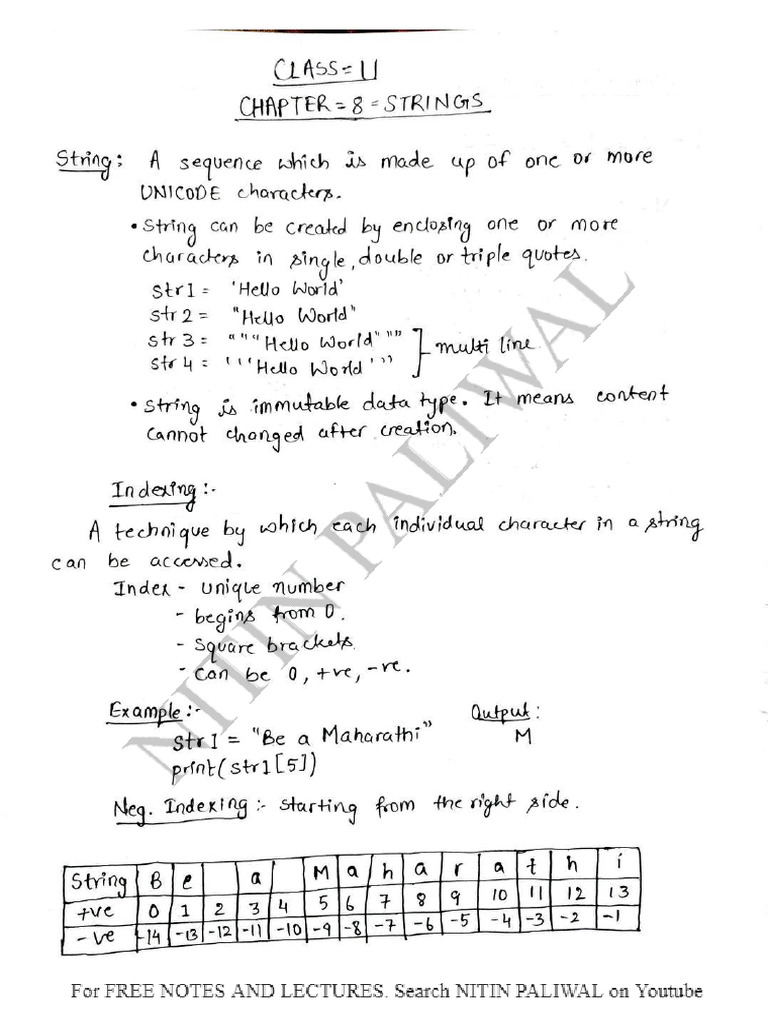 CLASS=11
CHAPTER=8=STRINGS
String: A sequence which is made up of one or more
UNICODE characters.
• String can be created by enclosing one or more
characters in single, double or triple quotes.
Str1 = 'Hello World'
Str2 = "Hello World"
Str3 = """Hello World"""
Str4 = '''Hello World'''
] multi line
• String is immutable data type. It means content
cannot changed after creation.
Indexing:-
A technique by which each individual character in a string
can be accessed.
Index - unique number
- begins from 0.
- Square brackets.
- Can be 0, +ve, -ve.
Example:- Output:
Str1 = "Be a Maharathi" M
print(str1[5])
Neg. Indexing:- starting from the right side.
String B e a M a h a r a t h i
+ve 0 1 2 3 4 5 6 7 8 9 10 11 12 13
-ve -14 -13 -12 -11 -10 -9 -8 -7 -6 -5 -4 -3 -2 -1
For FREE NOTES AND LECTURES. Search NITIN PALIWAL on Youtube
NITIN PALIWAL